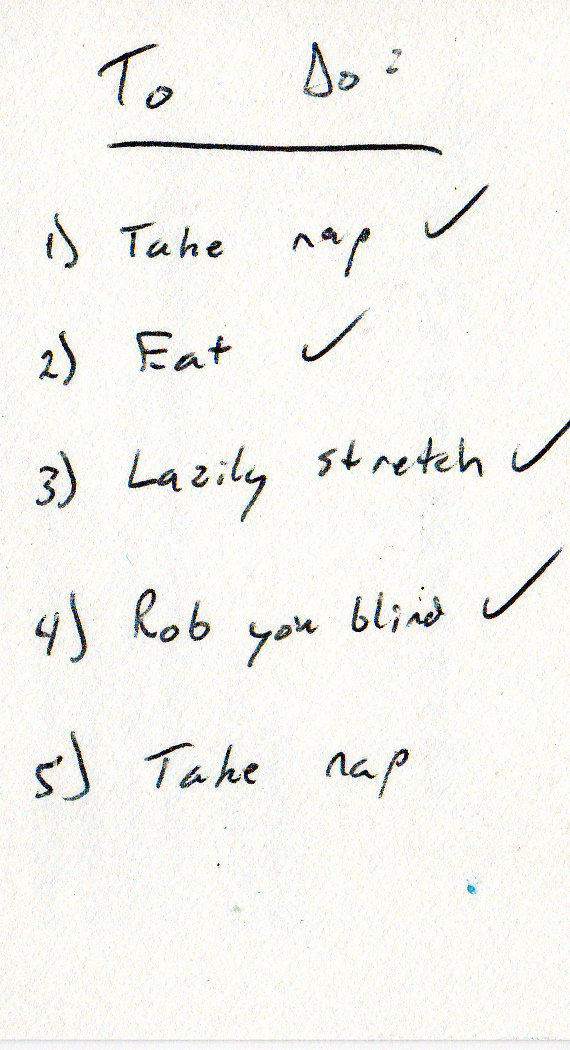 To Do:
1) Take nap ✓
2) Eat ✓
3) Lazily stretch ✓
4) Rob you blind ✓
5) Take nap